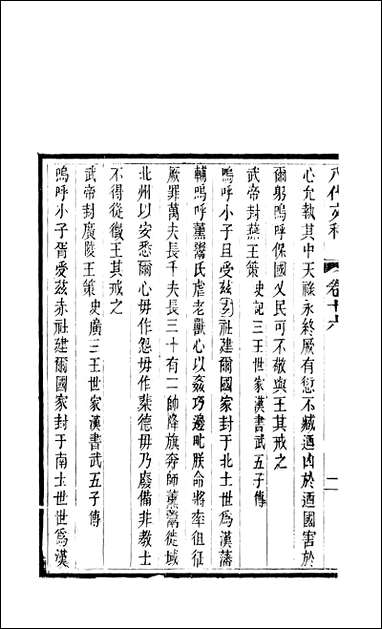 八代文粹 卷十六 二
心允執其中天祿永終厥有愆不臧迺凶於迺國害於
爾躬嗚呼保國乂民可不敬與王其戒之
武帝封燕王策 史記三王世家漢書武五子傳
嗚呼小子旦受茲玄社建爾國家封于北土世爲漢藩
輔嗚呼薰鬻氏虐老獸心以姦巧邊甿朕命將率徂征
厥罪萬夫長千夫長三十有二帥降旗奔師薰鬻徙域
北州以安悉爾心毋作怨毋作棐德毋乃廢備非教士
不得從徵王其戒之
武帝封廣陵王策 史廣三王世家漢書武五子傳
嗚呼小子胥受茲赤社建爾國家封于南土世世爲漢